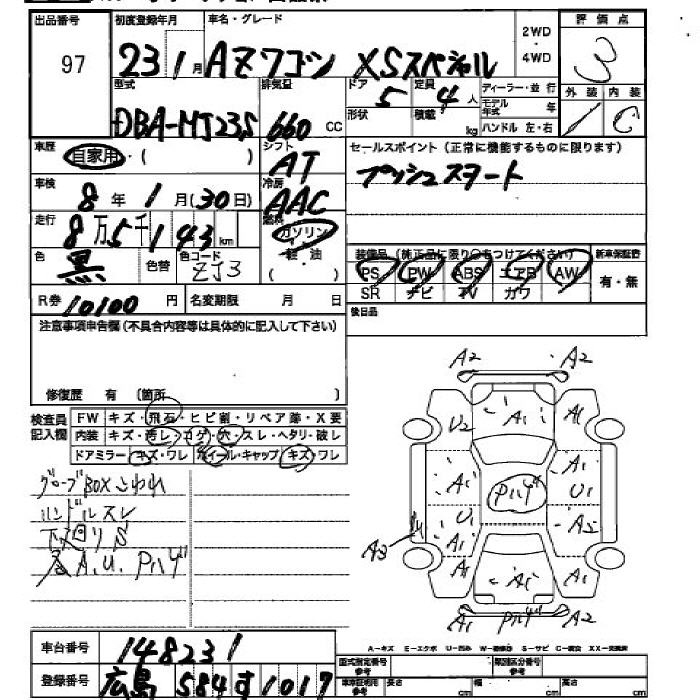 出品番号 初度登録年月 車名・グレード 2WD・4WD 評価点
97 23 1月 AZワゴン XSスペシャル 3
型式 排気量 ドア 5 定員 4人 ディーラー・並行 外装 内装
DBA-MJ23S 660 CC 形状 積載 kg モデル年式 年 ハンドル 左・右 C
車歴 自家用・( ) シフト AT セールスポイント (正常に機能するものに限ります)
プッシュスタート
車検 8年 1月(30日) 冷房 AAC
走行 8万5千143km 燃料 ガソリン・軽・油 ( )
色 黒 色替 色コード ZJ3
装備品 (純正品に限り○をつけてください) 新車保証書
PS PW ABS エアB AW 有・無
SR ナビ TV カワ
R券 10100円 名変期限 月 日 後日品
注意事項申告欄(不具合内容等は具体的に記入して下さい)
修復歴 有 〔箇所 〕
検査員記入欄 FW キズ・飛石・ヒビ割・リペア跡・X要
内装 キズ・汚レ・コゲ・穴・スレ・ヘタリ・破レ
ドアミラー キズ・ワレ ホイール・キャップ キズ・ワレ
グローブBOXこわれ
ハンドルスレ
下廻りS
各A.U. Pハゲ
A2 A2
U2 A1 A1
A1 Pハゲ A1
U1 U1
A3 A1 A2
A1 A1 A1
A1 Pハゲ A2
A-キズ E-エクボ U-凹み W-補修跡 S-サビ C-腐食 XX-交換済
車台番号 148231
登録番号 広島 584 す 1017
型式指定番号 参考 類別区分番号 参考
長さ cm 幅 cm 高さ cm